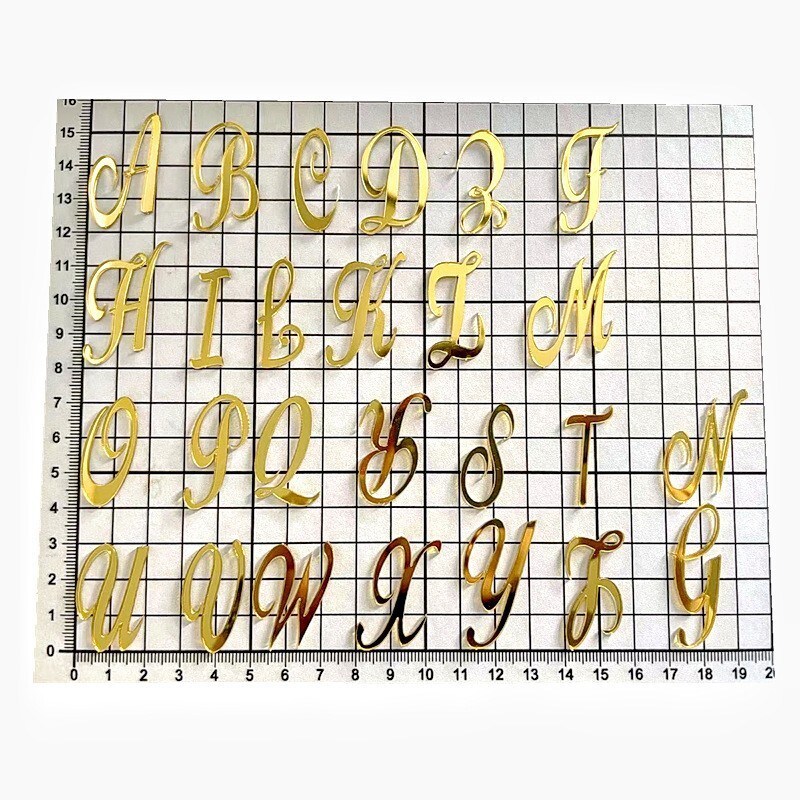 16
15
A B C D E F
14
13
12
11
H I J K L M
10
9
8
7
O P Q R S T N
6
5
4
3
U V W X Y Z G
2
1
0
0 1 2 3 4 5 6 7 8 9 10 11 12 13 14 15 16 17 18 19